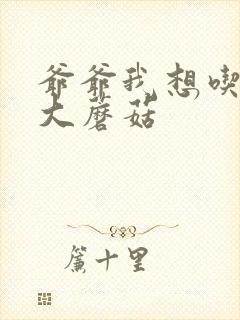 爷爷我想喫
大蘑菇
簾十里